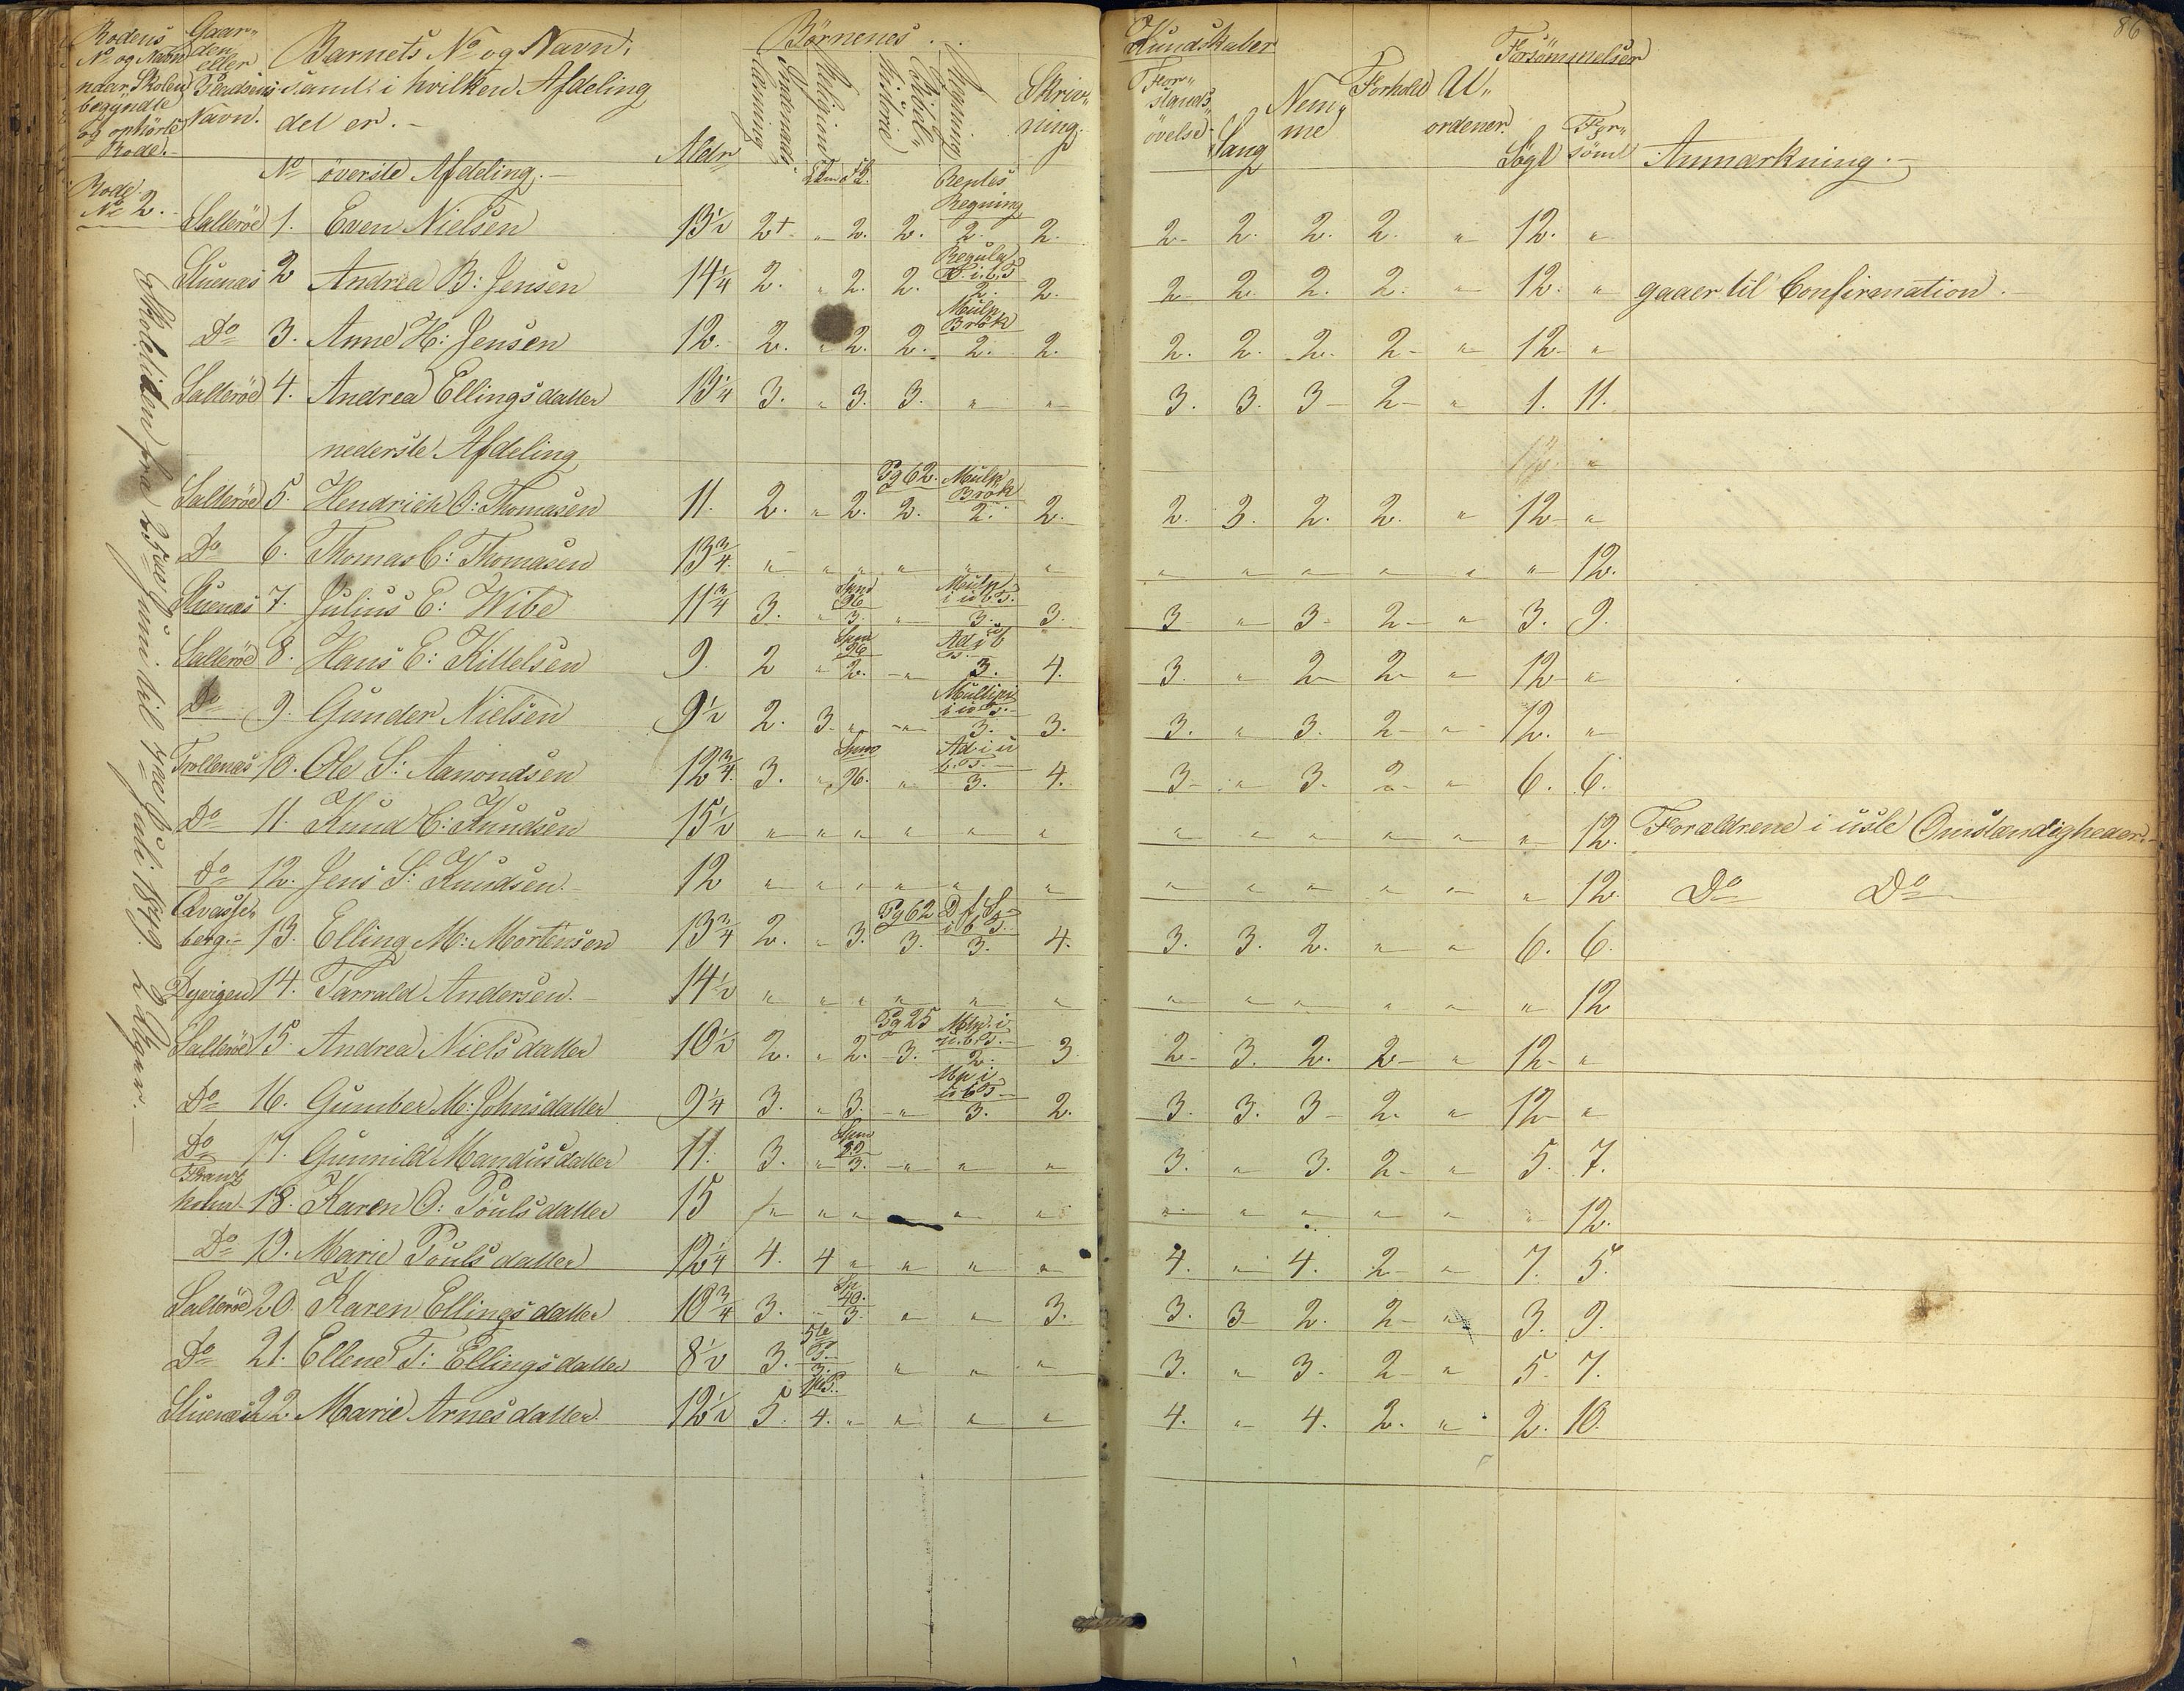 86
Rodens No og Navn naar Skolen begyndte og ophörte Rode.-
Gaardens eller Pladsens Navn.
Barnets No og Navn, samt i hvilken Afdeling det er.-
Aldr
Börnenes
Kundskaber
Læsning
Indenads
Religion
Bibel-historie
Regning
Skriv-ning.
For-stands-övelse
Sang
Nemme
Forhold
U-ordener.
Forsömmelser
Sögt
Forsömt
Anmærkning.-
No överste Afdeling.-
Rode No 2.-
Skoletiden fra 25de Juni til 7de Juli 1849. 2 Uger.-
Salteröd 1. Even Nielsen 13½ 2+. " 2. 2. Reples Regning 2. 2. 2- 2. 2. 2. " 12. "
Stuenæs 2 Andrea B: Jensen 14¼ 2. " 2. 2. Regula D. i. b. T 2. 2. 2- 2. 2. 2. " 12. " gaaer til Confirmation.
Do 3. Anne H: Jensen 12. 2. " 2. 2. Mulp Brök 2. 2. 2. 2. 2. 2- " 12- "
Salteröd 4. Andrea Ellingsdatter 13¼ 3. " 3. 3. " " 3. 3. 3- 2- " 1. 11.
nederste Afdeling
Salteröd 5. Hendrich O: Thomasen 11. 2. " 2. Pg 62. 2. Mulp Brök 2. 2. 2. 3. 2. 2. " 12- "
Do 6. Thomas C: Thomasen 13¾ " " " " " " " " " " " " 12.
Stuenæs 7. Julius E: Wibe 11¾ 3. " 96 3. " Mulp i u b T. 3. 3. 3- " 3- 2- " 3. 9.
Salteröd 8. Hans E: Kittelsen 9. 2 " 96 2. " Ad i u b T. 3. 4. 3. " 2 2- " 12- "
Do 9. Gunder Nielsen 9½ 2. 3- " " Multipi i u b T. 3. 3. 3. " 3. 2- " 12. "
Trollenæs 10. Ole S: Aanondsen 12¾ 3. " 96. " Ad i u b. T. 3. 4. 3- " 3. 2- " 6. 6.
Do 11. Knud C: Knudsen 15½ " " " " " " " " " " " " 12. Forældrene i usle Omstændigheder.-
Do 12. Jens S: Knudsen.- 12 " " " " " " " " " " " " 12. Do Do
Qvasseberg.- 13. Elling M: Mortensen 13¾ 2. " 3. Pg 62 3. i b T. 3. 4. 3. 3. 2. " " 6. 6.
Dyvigen 14. Tarrald Andersen.- 14½ " " " " " " " " " " " " 12
Salteröd 15. Andrea Nielsdatter 10½ 2. " 2. Pg 25 3. Mulp. i u. b. T. 2. 3 2- 3. 2. 2- " 12- "
Do 16. Gumber M: Johnsdatter 9¼ 3. " 3. " Mp i u b T 3. 2. 3. 3. 3- 2. " 12- "
Do 17. Gunnild Mandusdatter 11. 3. " 3. " " " 3. " 3. 2- " 5. 7.
Frantzholm 18. Karen O: Poulsdatter 15 " " " " " " " " " " " 12.
Do 19. Marie Poulsdatter 12¼ 4. 4 " " " " 4. " 4. 2- " 7. 5.
Salteröd 20. Karen Ellingsdatter 10¾ 3. - 40. 3. " " 3. 3. 3 2. 2- " 3. 9.
Do 21. Ellene T: Ellingsdatter 8½ 3. 5te P. 3. " " " 3. " 3. 2- " 5- 7.
Stuenæs 22. Marie Arnesdatter. 12½ 5. 4. " " " " 4. " 4. 2. " 2. 10.